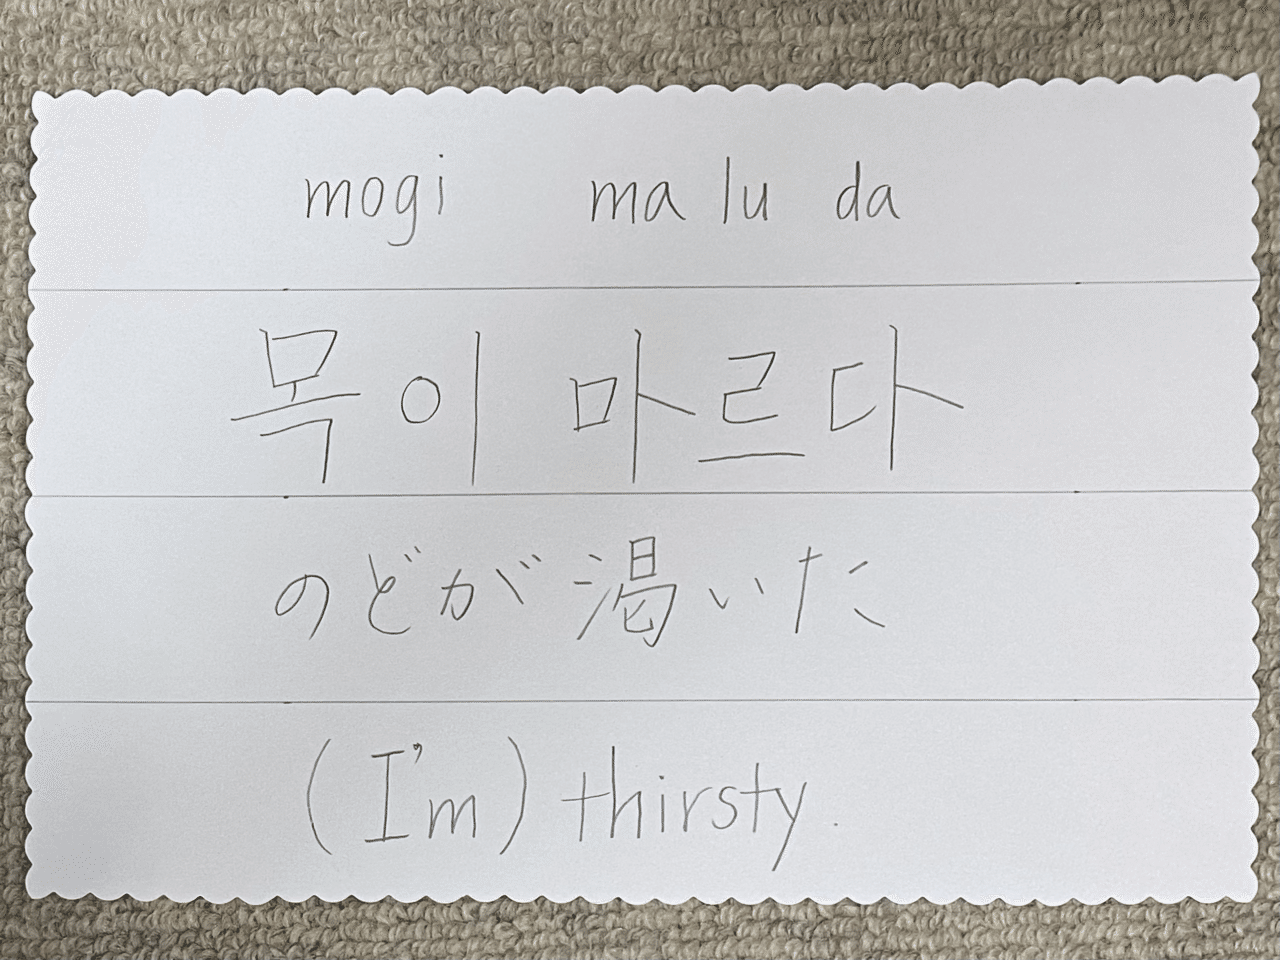 mogi ma lu da
목이 마르다
のどが渇いた
(I'm) thirsty.